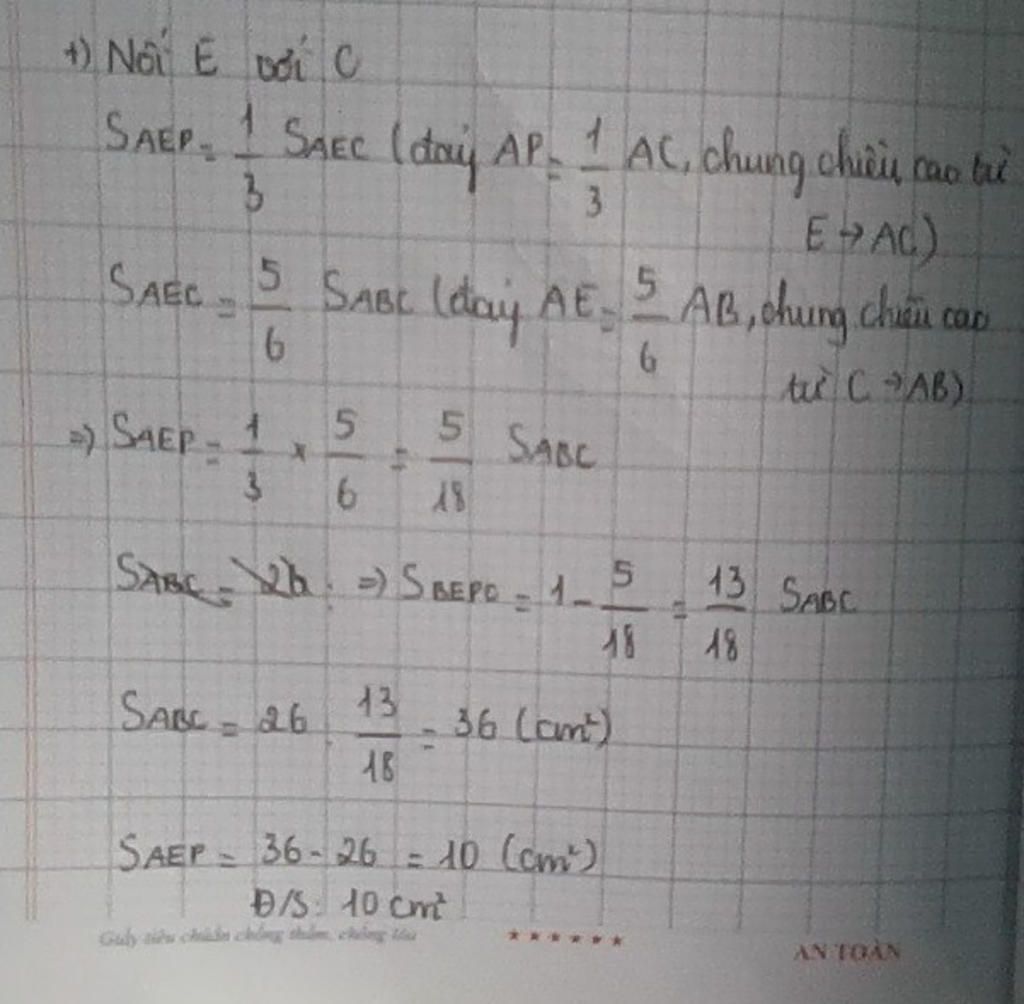 +) Nối E với C
SAEP = 1/3 SAEC (đáy AP = 1/3 AC, chung chiều cao từ
E → AC)
SAEC = 5/6 SABC (đáy AE = 5/6 AB, chung chiều cao
từ C → AB)
=) SAEP = 1/3 × 5/6 = 5/18 SABC
SABC = 26 : =) SBEPC = 1 - 5/18 = 13/18 SABC
SABC = 26 : 13/18 = 36 (cm²)
SAEP = 36 - 26 = 10 (cm²)
Đ/S: 10 cm²
Giấy tiêu chuẩn chống thấm, chống lóa ★ ★ ★ ★ ★ ★ AN TOÀN